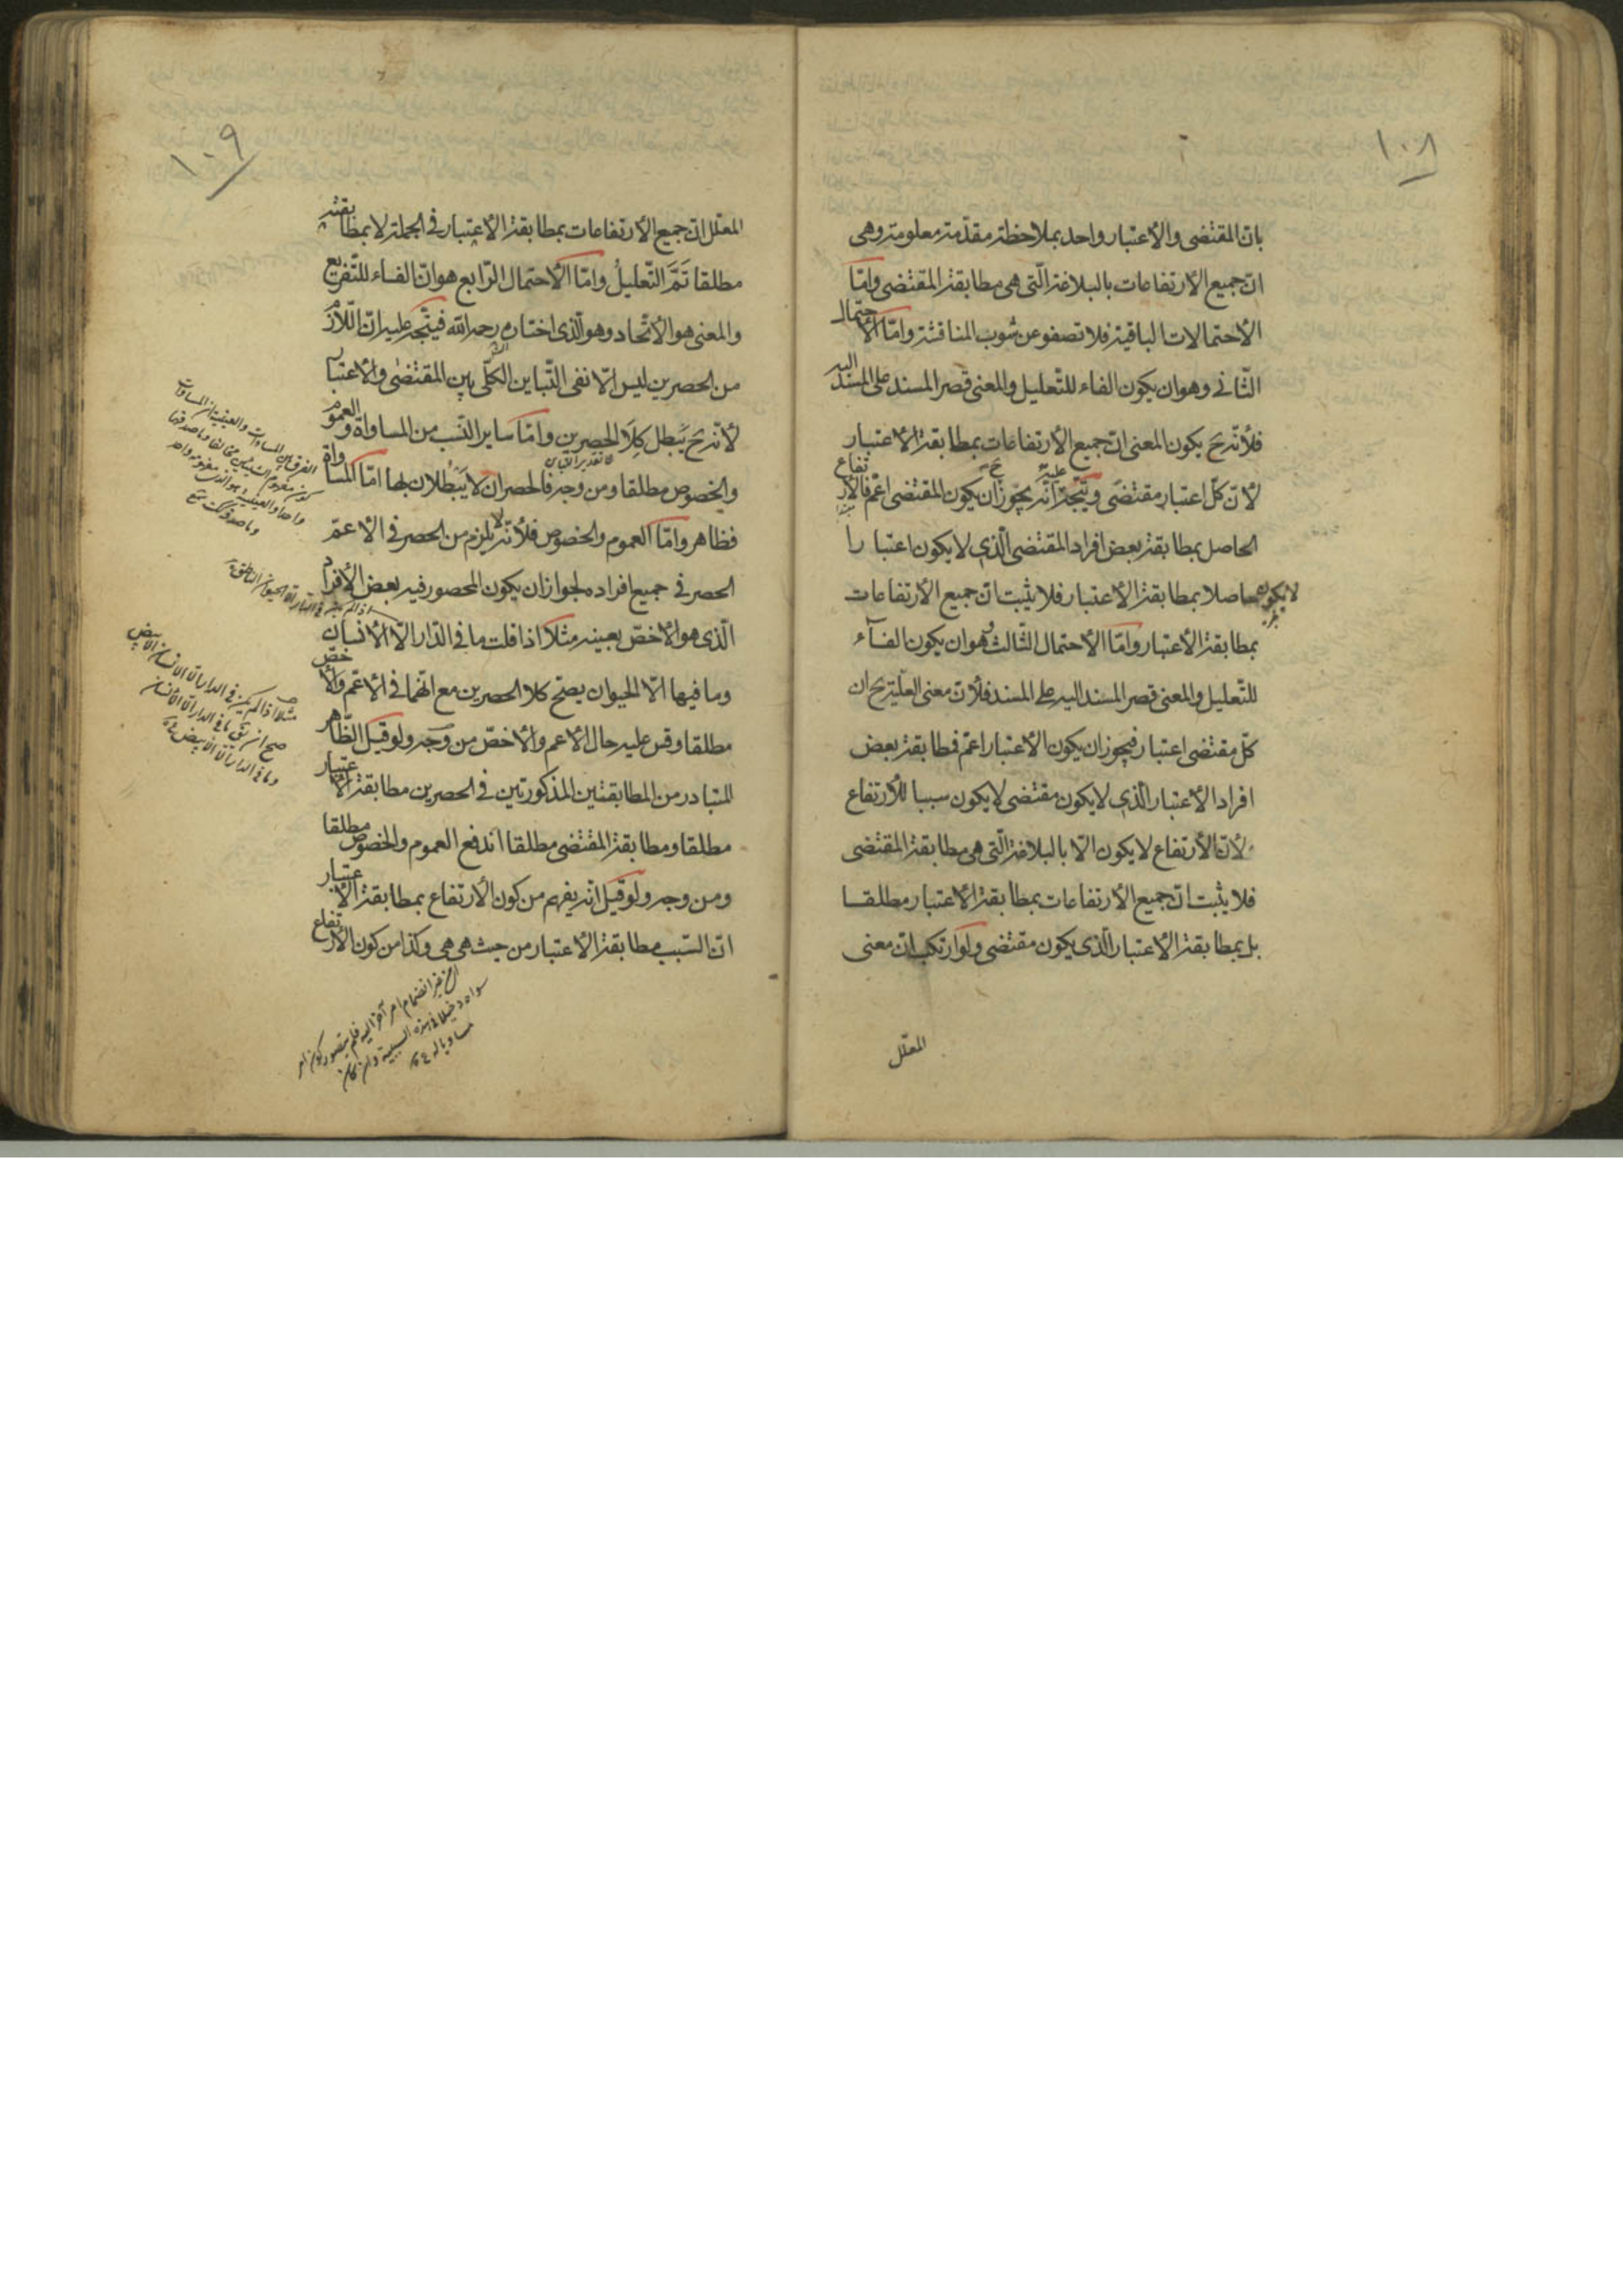 ١٠٨
بانّ المقتضى والأعتبار واحد بملاحظة مقدّمة معلومة وهى
انّ جميع الأرتفاعات بالبلاغة الّتى هى مطابقة المقتضى وامّا
الأحتمالات الباقية فلا تصفو عن شوب المناقشة وامّا الأحتمال
الثّانى وهو ان يكون الفاء للتّعليل والمعنى قصر المسند على المسند اليه
فلأنّه ح يكون المعنى انّ جميع الأرتفاعات بمطابقة الأعتبار
لأنّ كلّ اعتبار مقتضى ويتّجه عليه انّه يجوز ح ان يكون المقتضى اعمّ فالأرتفاع
الحاصل بمطابقة بعض افراد المقتضى الّذى لا يكون اعتبارا
لا يكون حاصلا بمطابقة الأعتبار فلا يثبت انّ جميع الأرتفاعات
بمطابقة الأعتبار وامّا الأحتمال الثّالث وهو ان يكون الفآء
للتّعليل والمعنى قصر المسند اليه على المسند فلأنّ معنى العلّية ح ان
كلّ مقتضى اعتبار فيجوز ان يكون الأعتبار اعمّ فمطابقة بعض
افراد الأعتبار الّذى لا يكون مقتضى لا يكون سببا للأرتفاع
لأنّ الأرتفاع لا يكون الّا بالبلاغة الّتى هى مطابقة المقتضى
فلا يثبت انّ جميع الأرتفاعات بمطابقة الأعتبار مطلقا
بل بمطابقة الأعتبار الّذى يكون مقتضى ولو ارتكب انّ معنى
المعلّل
١٠٩
المعلّل انّ جميع الأرتفاعات بمطابقة الأعتبار فى الجملة لا بمطابقته
مطلقا تَمَّ التّعليلُ وامّا الأحتمال الرّابع هو انّ الفاء للتّفريع
والمعنى هو الأتّحاد وهو الّذى اختاره رحمه الله فيتّجه عليه انّ اللّازم
من الحصرين ليس الّا نفى التّباين الكلّى بين المقتضى والأعتبار
لأنّه ح يَبطل كِلَا الحصرين وامّا ساير النّسب من المساواة والعموم
والخصوص مطلقا ومن وجه فالحصران لا يَبطُلان بها امّا المساواة
فظاهر وامّا العموم والخصوص فلأنّه لا يلزم من الحصر فى الأعمّ
الحصر فى جميع افراده لجواز ان يكون المحصور فيه بعض الأفراد
الّذى هو الأخصّ بعينه مثلا اذا قلت ما فى الدّار الّا الأنسان
وما فيها الّا الحيوان يصحّ كلا الحصرين مع انّهما فى الأعمّ والأخصّ
مطلقا وقس عليه حال الأعم والأخصّ من وجه ولو قيل الظّاهر
المتبادر من المطابقتين المذكورتين فى الحصرين مطابقة الأعتبار
مطلقا ومطابقة المقتضى مطلقا اندفع العموم والخصوص مطلقا
ومن وجه ولو قيل انّه يفهم من كون الأرتفاع بمطابقة الأعتبار
انّ السّبب مطابقة الأعتبار من حيث هى هى وكذا من كون الأرتفاع
مثلا اذا لم يكن فى الدار الّا الانسان الابيض
صح ان يق ما فى الدار الّا الأنسان
وما فى الدار الّا الابيض